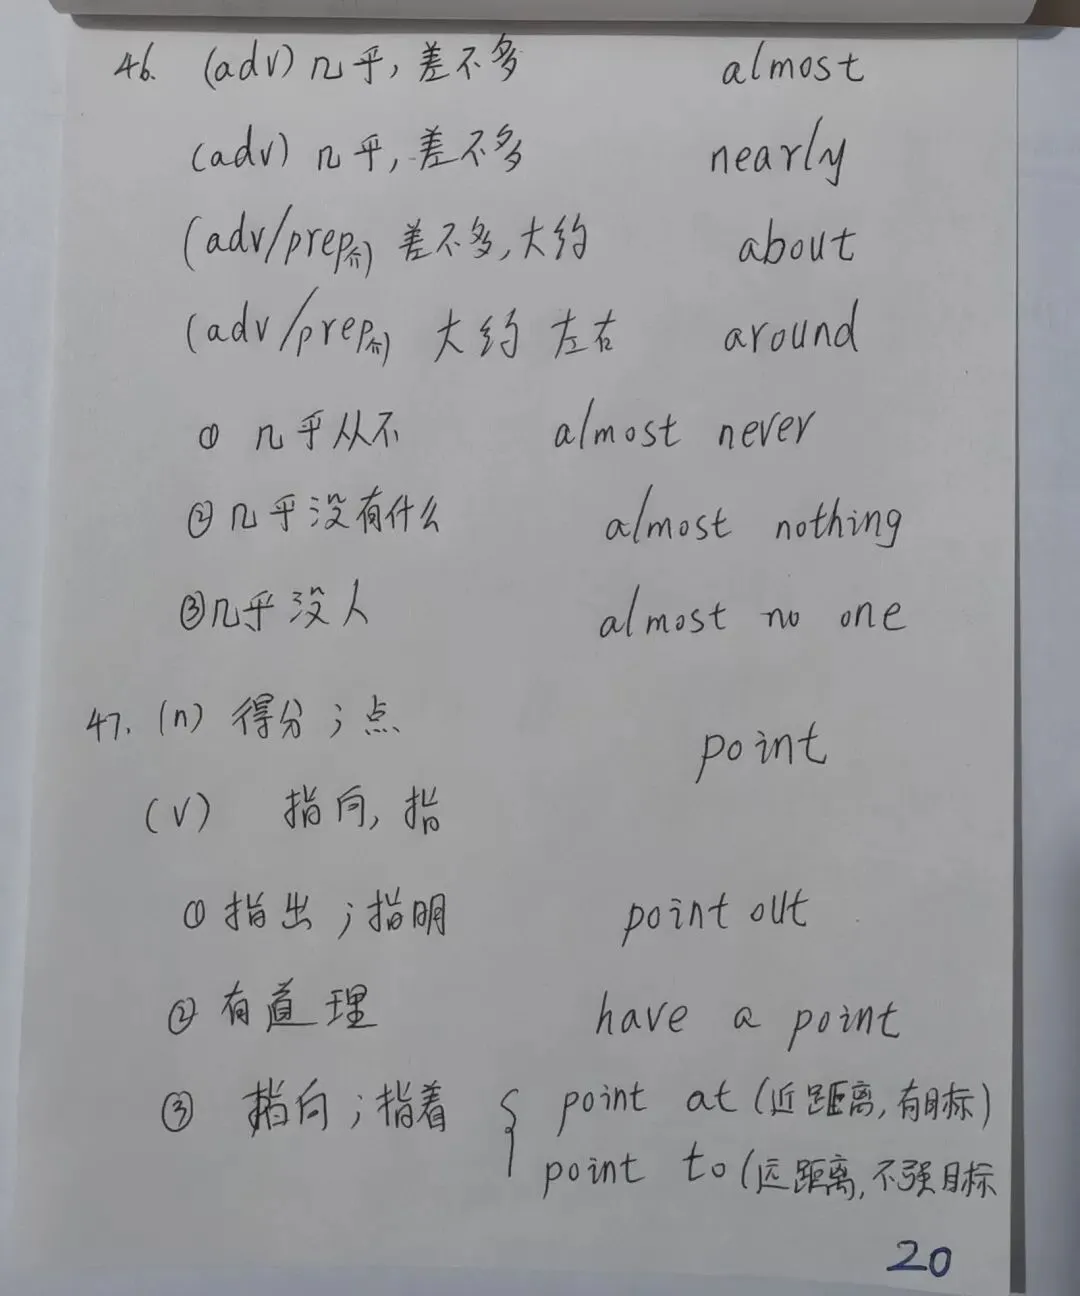 46. (adv) 几乎, 差不多 almost
(adv) 几乎, 差不多 nearly
(adv/prep介) 差不多, 大约 about
(adv/prep介) 大约 左右 around
① 几乎从不 almost never
② 几乎没有什么 almost nothing
③ 几乎没人 almost no one
47. (n) 得分；点 point
(v) 指向, 指
① 指出；指明 point out
② 有道理 have a point
③ 指向；指着 { point at (近距离, 有目标)
point to (远距离, 不强目标
20